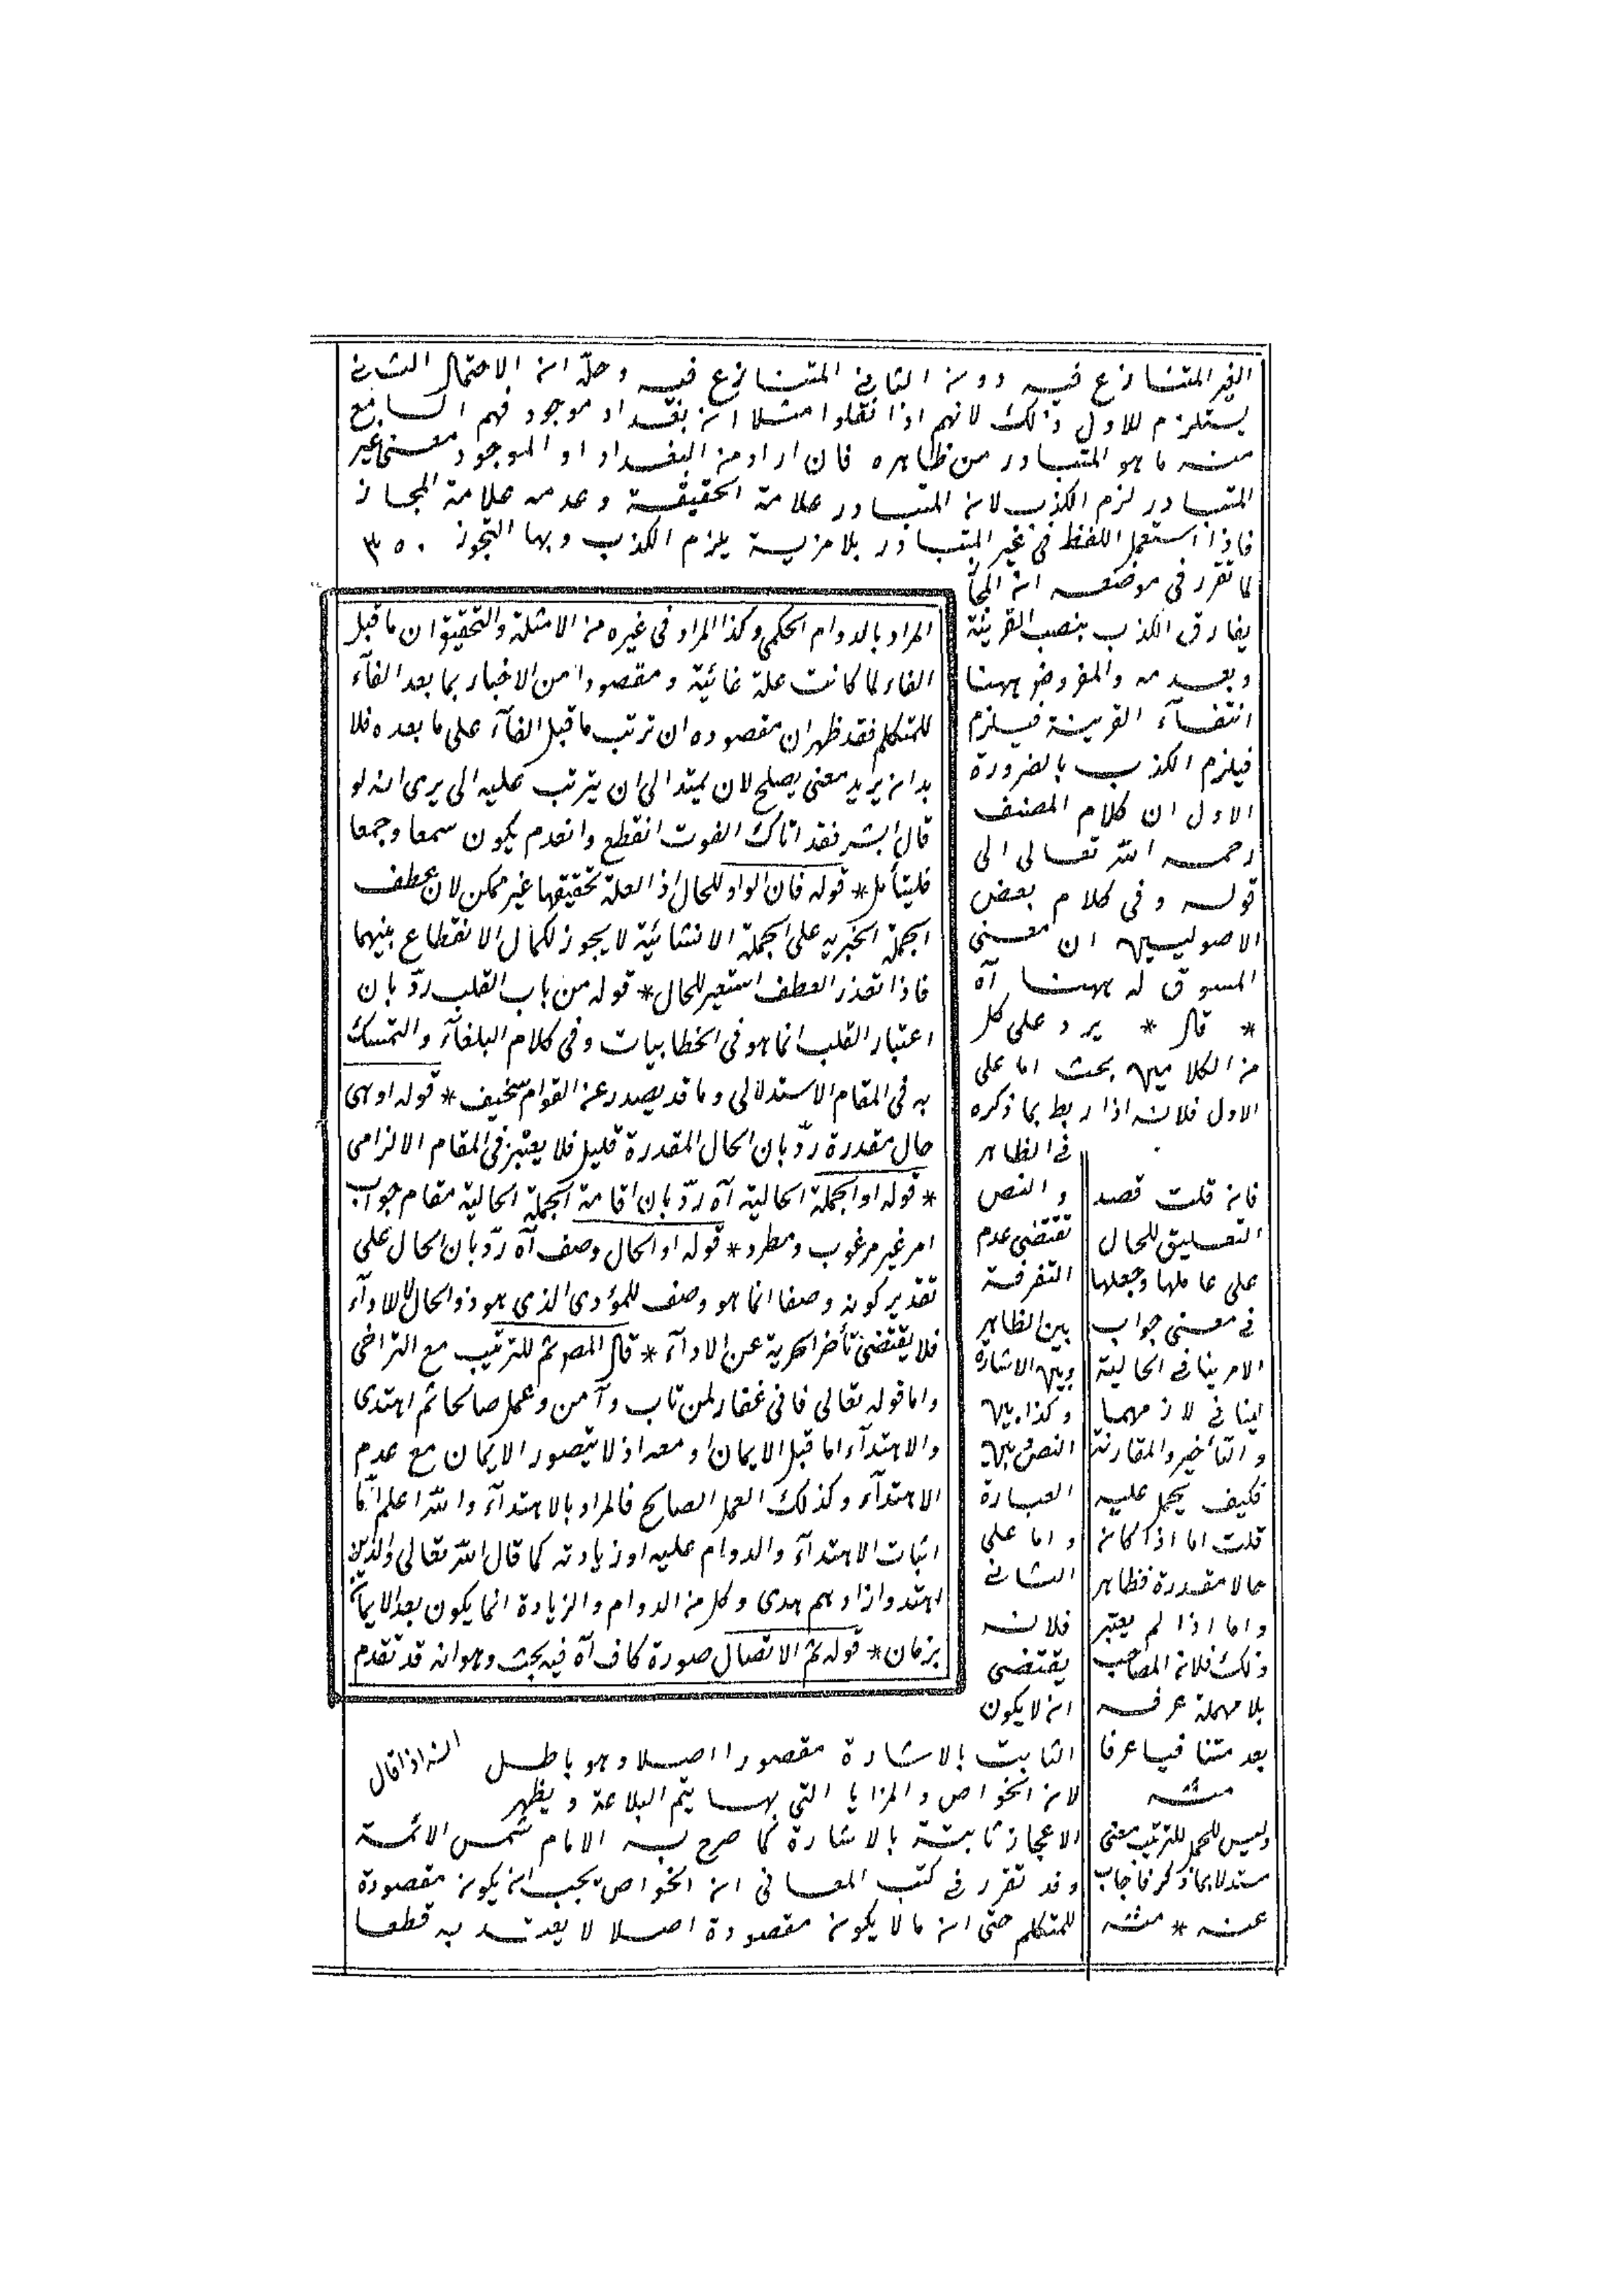 الغير المتنازع فيه دون الثاني المتنازع فيه وحله ان الاحتمال الثاني
يستلزم للاول ذلك لانهم اذا نقلوا مثلا ان بغداد موجود فهم السامع
منه ما هو المتبادر من ظاهره فان اراد من البغداد او الموجود معنى غير
المتبادر لزم الكذب لان المتبادر علامة الحقيقة وعدمه علامة المجاز
فاذا استعمل اللفظ في غير المتبادر بلا مزية يلزم الكذب وبها التجوز ٣٥٠
لما تقرر في موضعه ان المجا
يفارق الكذب بنصب القرينة
وبعدمه والمفروض ههنا
انتفآء القرينة فيلزم
فيلزم الكذب بالضرورة
الاول ان كلام المصنف
رحمه الله تعالى الى
قوله وفي كلام بعض
الاصوليين ان معنى
المسوق له ههنا آه
* قال * يرد على كل
من الكلامين بحث اما على
الاول فلانه اذا ربط بما ذكره
في الظاهر
والنص
تقتضي عدم
التفرقة
بين الظاهر
وبين الاشارة
وكذا بين
النص وبين
العبارة
واما على
الثاني
فلانه
يقتضى
ان لا يكون
الثابت بالاشارة مقصورا اصلا وهو باطل
لان الخواص والمزايا التي بها يتم البلاغة ويظهر
الاعجاز ثابتة بالاشارة كما صرح به الامام شمس الائمة
وقد تقرر في كتب المعاني ان الخواص يجب ان يكون مقصودة
للمتكلم حتى ان ما لا يكون مقصودة اصلا لا يعتد به قطعا
المراد بالدوام الحكمي وكذا المراد في غيره من الامثلة والتحقيق ان ما قبل
الفاء لما كانت علة غائية ومقصودا من الاخبار بما بعد الفآء
للمتكلم فقد ظهر ان مقصوده ان ترتب ما قبل الفآء على ما بعده فلا
بد ان يريد معنى يصلح لان يمتد الى ان يترتب عليه الى يرى انه لو
قال ابشر فقد اتاك الغوث انقطع وانعدم يكون سمعا وجمعا
فليتأمل * قوله فان الواو للحال اذ العلة تحقيقها غير ممكن لان يعطف
الجملة الخبريه على الجملة الانشائية لا يجوز لكمال الانقطاع بينهما
فاذا تعذر العطف استعير للحال * قوله من باب القلب ردّ بان
اعتبار القلب انما هو في الخطابيات وفي كلام البلغآء والتمسك
به في المقام الاستدلالي وما قد يصدر عن القوام سخيف * قوله او هى
حال مقدرة ردّ بان الحال المقدرة قليل فلا يعتبر في المقام الالزامى
* قوله او الجملة الحالية آه ردّ بان اقامة الجملة الحالية مقام جواب
امر غير مرغوب ومطرد * قوله او الحال وصف آه ردّ بان الحال على
تقدير كونه وصفا انما هو وصف للمؤدى الذي هو ذو الحال لا للادآء
فلا يقتضى تأخر الحرية عن الادآء * قال المص ثم للترتيب مع التراخى
واما قوله تعالى فاني غفار لمن تاب وآمن وعمل صالحا ثم اهتدى
والاهتدآء اما قبل الايمان او معه اذ لا يتصور الايمان مع عدم
الاهتدآء وكذلك العمل الصالح فالمراد بالاهتدآء والله اعلم اما
اثبات الاهتدآء والدوام عليه او زيادته كما قال الله تعالى والذين
اهتدوا زادهم هدى وكل من الدوام والزيادة انما يكون بعد الايمان
بزمان * قوله ثم الاتصال صورة كاف آه فيه بحث وهو انه قد تقدم
انه اذا قال
فان قلت قصد
التعليق للحال
على عاملها وجعلها
في معنى جواب
الامر ينافي الحالية
لينافي لازمهما
والتأخير والمقارنة
فكيف يحمل عليه
قلت اما اذا كان
حالا مقدرة فظاهر
واما اذا لم يعتبر
ذلك فلان المصاحب
بلا مهملة عرفه
بعد متنافيا عرفا
منه
وليس للحمل للترتيب معنى
مستدلا بما ذكر فاجاب
عنه * منه